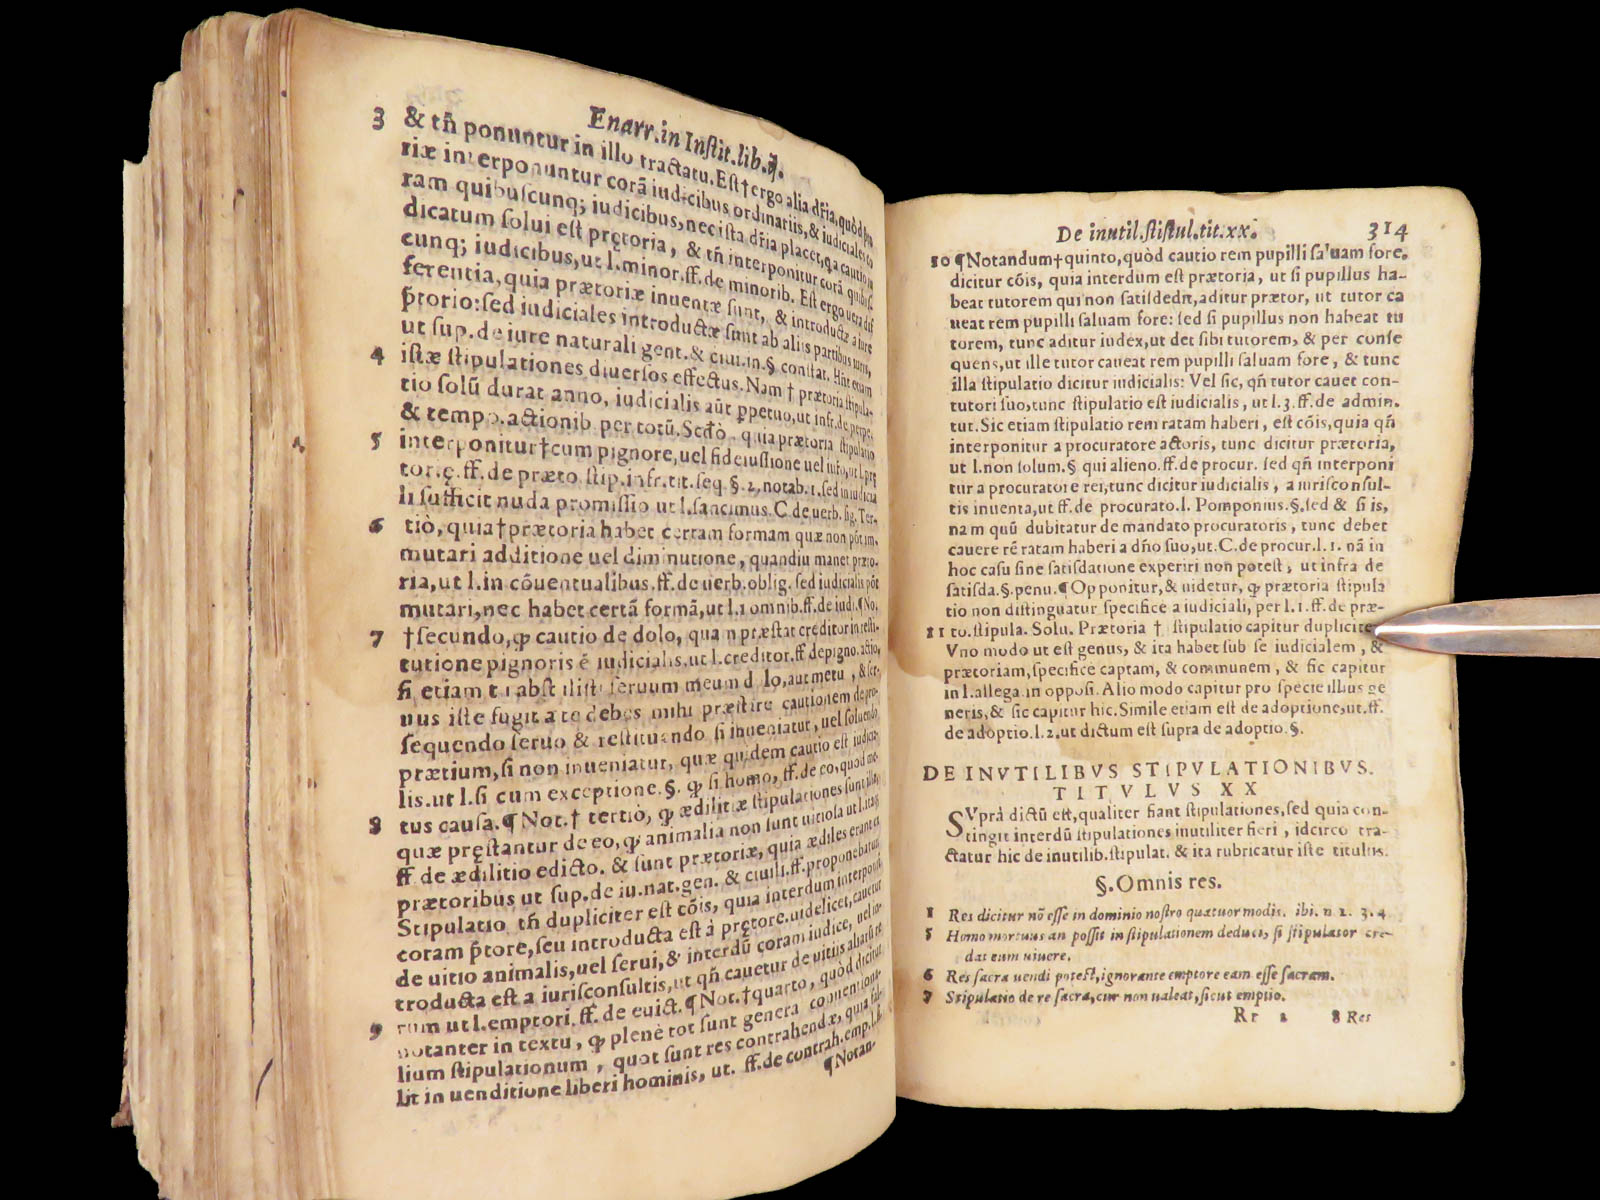 Enarr.in Inſtit.lib.3.
3 & tn̄ ponuntur in illo tractatu. Eſt†ergo alia dr̄ia, quòd
riæ interponuntur corā iudicibus ordinariis, & iudiciales
ram quibuſcunq; iudicibus, nec iſta dr̄ia placet, q̧a cautio
dicatum ſolui eſt prętoria, & tn̄ interponitur corā quibuſ-
cunq; iudicibus, ut l.minor.ff.de minorib. Eſt ergo uera dif
ferentia, quia prætoriæ inuentæ ſunt, & introductæ a iure
p̄torio: ſed iudiciales introductæ ſunt ab aliis partibus iuris,
ut ſup.de iure naturali gent.& ciui.in.§ conſtat. Hn̄t etiam
4 iſtæ ſtipulationes diuerſos effectus. Nam † prætoria ſtipula-
tio ſolū durat anno, iudicialis aūt ꝑpetuo, ut infr.de perpe.
& tempo.actionib per totū. Scd̄ò. quia prætoria ſtipulatio
5 interponitur†cum pignore, uel fideiuſſione uel iuſto, ut l.prę
tor.ę.ff.de præto ſtip.infr.tit.ſeq §.2, notab.1.ſed in iudicia
li ſufficit nuda promiſſio ut l.ſancimus.C de uerb.ſig. Ter-
6 tiò, quia†prætoria habet certam formam quæ non pōt im-
mutari additione uel diminutione, quandiu manet præto-
ria, ut l.in cōuentualibus.ff.de uerb.oblig. ſed iudicialis pōt
mutari, nec habet certā formā, ut l.1 omnib.ff.de iudi.¶No.
7 †ſecundo, ꝙ cautio de dolo, qua n præſtat creditor in reſti-
tutione pignoris ē iudicialis.ut l.creditor.ff de pigno.actio,
ſi etiam tu abſtuliſti ſeruum meum dolo, aut metu, & ſer-
uus iſte fugit a te debes mihi præſtare cautionem de per-
ſequendo ſeruo & reſtituendo ſi inueniatur, uel ſoluendo
prætium, ſi non inueniatur, quæ quidem cautio eſt iudicia-
lis.ut l.ſi cum exceptione.§. ꝙ ſi homo, ff.de eo, quod me-
8 tus cauſa.¶ Not.† tertiò, ꝙ ædilitiæ ſtipulationes ſunt illæ,
quæ pręſtantur de eo, ꝙ animalia non ſunt uitioſa ut l.
ff de ædilitio edicto. & ſunt prætoriæ, quia ædiles erant
prætoribus ut ſup.de iu.nat.gen. & ciuili.ff.proponebatur
Stipulatio tn̄ dupliciter eſt cōis, quia interdum interponit
coram p̄tore, ſeu introducta eſt à prętore.uidelicet, cauetur
de uitio animalis, uel ſerui, & interdū coram iudice, uel in-
troducta eſt a iuriſconſultis, ut qn̄ cauetur de uitiis aliarū re
9 rum ut l.emptori.ff.de euict.¶Not.†quarto, quòd dicitur
notanter in textu, ꝙ plenè tot ſunt genera conuentiona-
lium ſtipulationum, quot ſunt res contrahendæ, quia
lit in uenditione liberi hominis, ut. ff.de contrah.emp.l.
¶Notan-
De inutil.ſtiſtul.tit.xx. 314
10 ¶Notandum†quinto, quòd cautio rem pupilli ſaluam fore.
dicitur cōis, quia interdum eſt prætoria, ut ſi pupillus ha-
beat tutorem qui non ſatiſdedit, aditur prætor, ut tutor ca
ueat rem pupilli ſaluam fore: ſed ſi pupillus non habeat tu
torem, tunc aditur iudex, ut det ſibi tutorem, & per conſe
quens, ut ille tutor caueat rem pupilli ſaluam fore, & tunc
illa ſtipulatio dicitur iudicialis: Vel ſic, qn̄ tutor cauet con-
tutori ſuo, tunc ſtipulatio eſt iudicialis, ut l.3.ff.de admin.
tut. Sic etiam ſtipulatio rem ratam haberi, eſt cōis, quia qn̄
interponitur a procuratore actoris, tunc dicitur prætoria,
ut l.non ſolum.§ qui alieno.ff.de procur. ſed qn̄ interponi
tur a procuratore rei, tunc dicitur iudicialis, a iuriſconſul-
tis inuenta, ut ff.de procurato.l. Pomponius.§.ſed & ſi is,
nam quū dubitatur de mandato procuratoris, tunc debet
cauere rē ratam haberi a dn̄o ſuo, ut.C.de procur.l.1. nā in
hoc caſu ſine ſatiſdatione experiri non poteſt, ut infra de
ſatiſda.§.penu.¶Opponitur, & uidetur, ꝙ prætoria ſtipula
tio non diſtinguatur ſpecifice a iudiciali, per l.1.ff.de præ-
11 to.ſtipula. Solu. Prætoria † ſtipulatio capitur duplicite
Vno modo ut eſt genus, & ita habet ſub ſe iudicialem, &
prætoriam, ſpecifice captam, & communem, & ſic capitur
in l.allega.in oppoſi. Alio modo capitur pro ſpecie illius ge
neris, & ſic capitur hic. Simile etiam eſt de adoptione, ut.ff.
de adoptio.l.2.ut dictum eſt ſupra de adoptio.§.
DE INVTILIBVS STIPVLATIONIBVS.
TITVLVS XX
SVprà dictū eſt, qualiter fiant ſtipulationes, ſed quia con-
tingit interdū ſtipulationes inutiliter fieri, idcirco tra-
ctatur hic de inutilib.ſtipulat. & ita rubricatur iſte titulus.
§.Omnis res.
1 Res dicitur nō eſſe in dominio noſtro quatuor modis. ibi. n 2. 3.4
5 Homo mortuus an poſſit in ſtipulationem deduci, ſi ſtipulator cre-
dat eum uiuere.
6 Res ſacra uendi poteſt, ignorante emptore eam eſſe ſacram.
7 Stipulatio de re ſacra, cur non ualeat, ſicut emptio.
Rr 2 8 Res